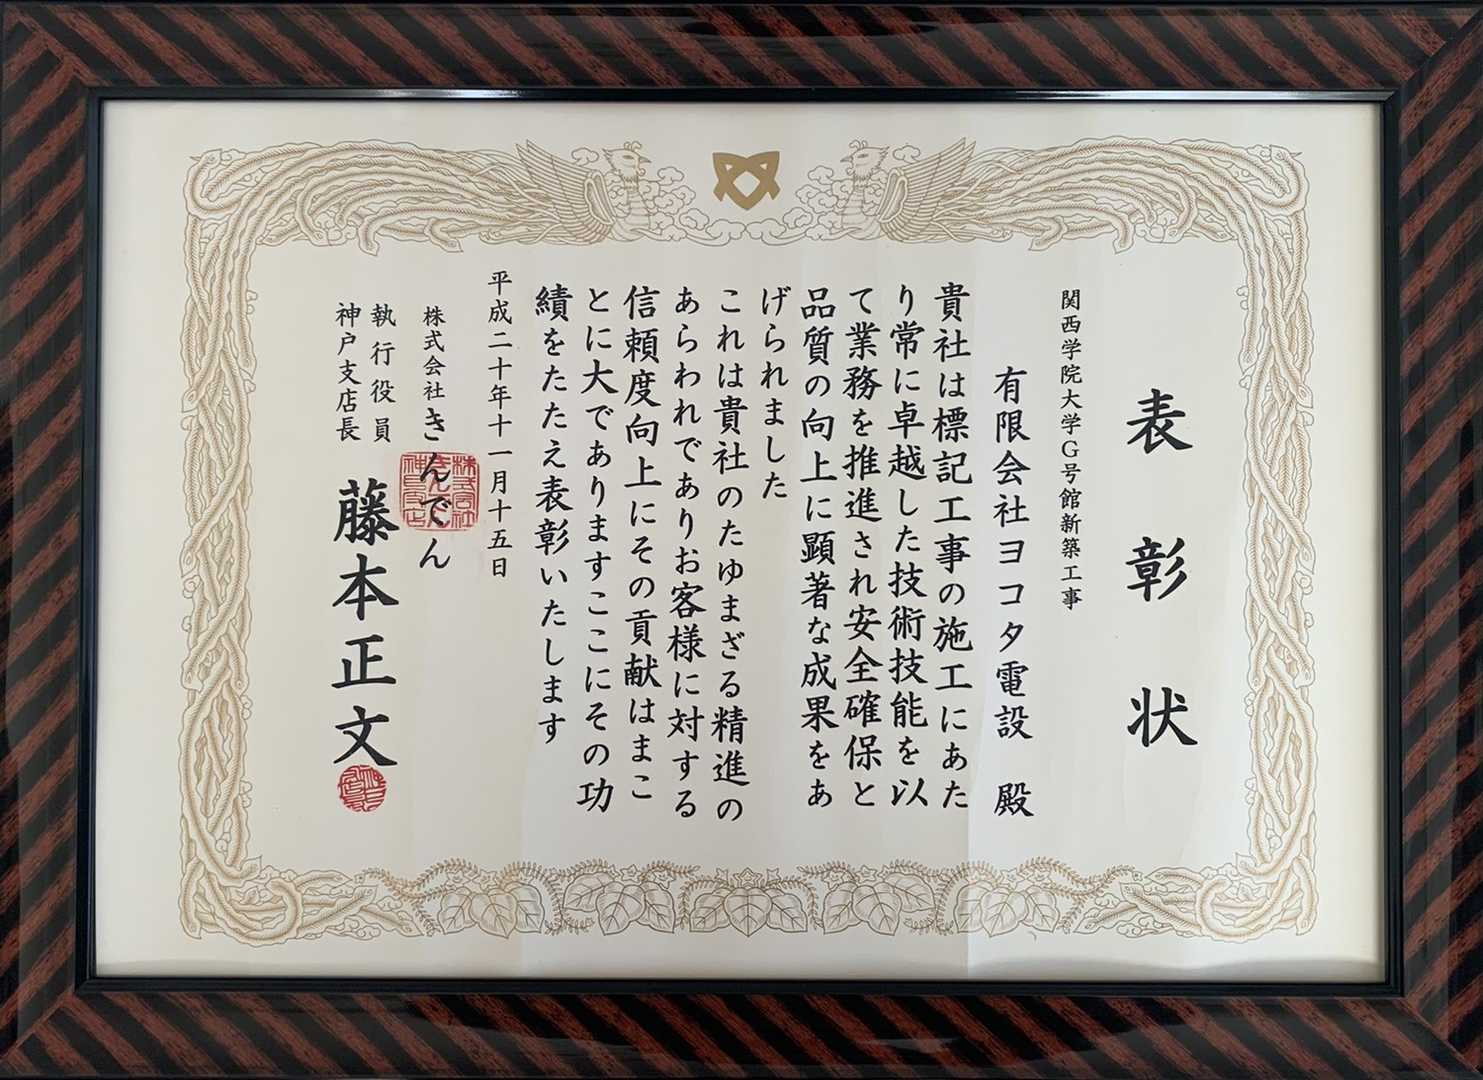 表彰状
関西学院大学G号館新築工事
有限会社ヨコタ電設 殿
貴社は標記工事の施工にあた
り常に卓越した技術技能を以
て業務を推進され安全確保と
品質の向上に顕著な成果をあ
げられました
これは貴社のたゆまざる精進の
あらわれでありお客様に対する
信頼度向上にその貢献はまこ
とに大でありますここにその功
績をたたえ表彰いたします
平成二十年十一月十五日
株式会社きんでん
執行役員
神戸支店長
藤本正文